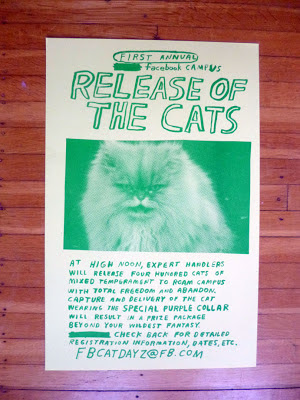 FIRST ANNUAL
facebook CAMPUS
RELEASE OF
THE CATS
AT HIGH NOON, EXPERT HANDLERS
WILL RELEASE FOUR HUNDRED CATS OF
MIXED TEMPERAMENT TO ROAM CAMPUS
WITH TOTAL FREEDOM AND ABANDON.
CAPTURE AND DELIVERY OF THE CAT
WEARING THE SPECIAL PURPLE COLLAR
WILL RESULT IN A PRIZE PACKAGE
BEYOND YOUR WILDEST FANTASY.
CHECK BACK FOR DETAILED
REGISTRATION INFORMATION, DATES, ETC.
FBCATDAYZ@FB.COM